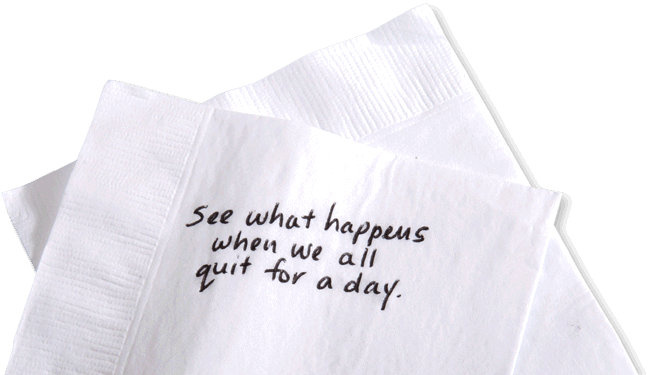 See what happens
when we all
quit for a day.